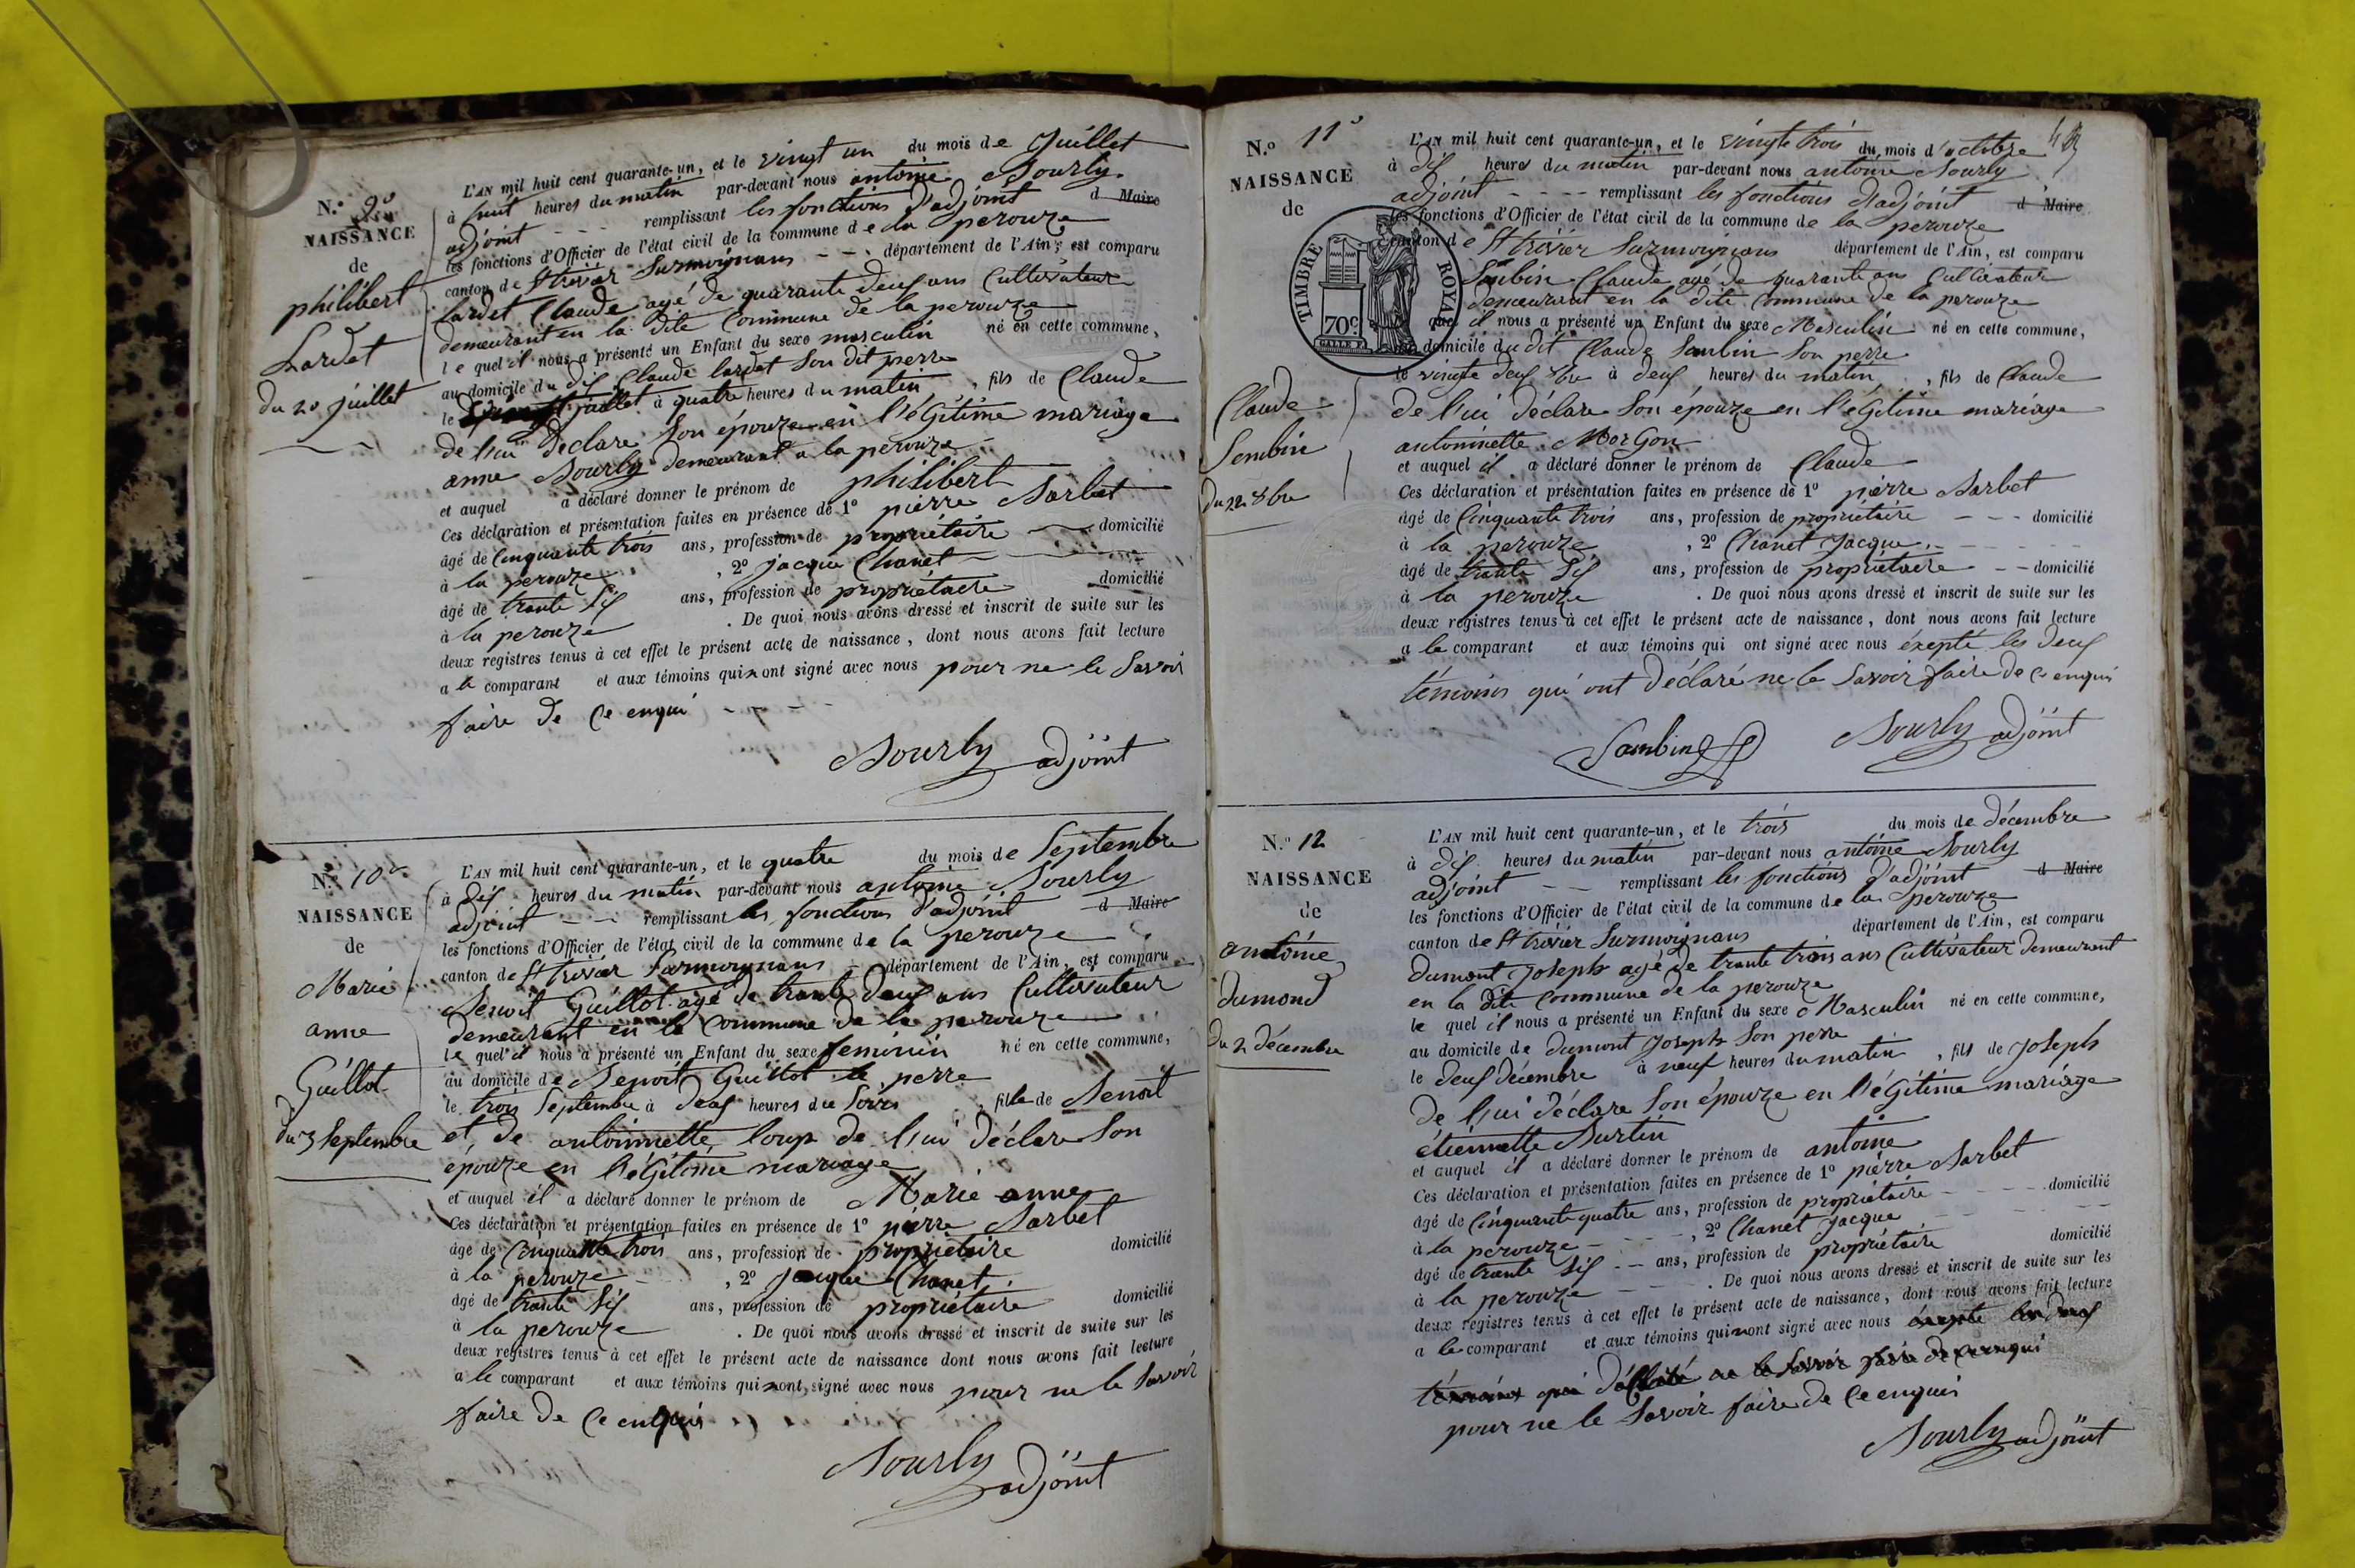 N.º 9º
NAISSANCE
de
philibert
Lardet
du 20 juillet
L'AN mil huit cent quarante-un, et le vingt un du mois de Juillet
à huit heures du matin par-devant nous antoine Bourly
adjoint - - - remplissant les fonctions d'adjoint d Maire
les fonctions d'Officier de l'état civil de la commune de la perouze
canton de St trivier Surmoignans - - département de l'Ain, est comparu
lardet Claude agé de quarante deux ans Cultivateur
demeurant en la dite Commune de la perouze
le quel il nous a présenté un Enfant du sexe masculin né en cette commune,
au domicile du dit Claude lardet Son dit perre
le juillet à quatre heures du matin, fils de Claude
de l'ui déclare Son épouze en l'égitime mariage
anne Bourly demeurant a la perouze
et auquel a déclaré donner le prénom de philibert
Ces déclaration et présentation faites en présence de 1º pierre Barbet
âgé de Cinquante trois ans, profession de propriétaire domicilié
à la perouze, 2º jacque Chanet
âgé de trante Six ans, profession de propriétaire domicilié
à la perouze. De quoi nous avons dressé et inscrit de suite sur les
deux registres tenus à cet effet le présent acte de naissance, dont nous avons fait lecture
a le comparant et aux témoins qui n ont signé avec nous pour ne le Savoir
faire de Ce enqui - - - -
Bourly adjoint
N.º 10º
NAISSANCE
de
Marie
anne
Guillot
du 3 Septembre
L'AN mil huit cent quarante-un, et le quatre du mois de Septembre
à dix heures du matin par-devant nous antoine Bourly
adjoint - - - remplissant les fonctions d'adjoint d Maire
les fonctions d'Officier de l'état civil de la commune de la perouze
canton de St trivier Surmoignans - département de l'Ain, est comparu
Benoit Guillot agé de trante deux ans Cultivateur
demeurant en la Commune de la perouze
le quel il nous a présenté un Enfant du sexe feminin né en cette commune,
au domicile de Benoit Guillot le perre
le trois Septembre à deux heures du Soire, fille de Benoit
et de antoinnette loup de l'ui déclare Son
épouze en l'égitime mariage
et auquel il a déclaré donner le prénom de Marie anne
Ces déclaration et présentation faites en présence de 1º pierre Barbet
âgé de Cinquante trois ans, profession de propriétaire domicilié
à la perouze - , 2º jacque Chanet.
âgé de trante Six ans, profession de propriétaire domicilié
à la perouze. De quoi nous avons dressé et inscrit de suite sur les
deux registres tenus à cet effet le présent acte de naissance dont nous avons fait lecture
a le comparant et aux témoins qui n ont signé avec nous pour ne le Savoir
faire de Ce enquis
Bourly adjoint
N.º 11º
NAISSANCE
de
Claude
Sembin
du 22 8bre
TIMBRE ROYAL
70c
L'AN mil huit cent quarante-un, et le vingte trois du mois d'octobre
à dix heures du matin par-devant nous antoine Bourly
adjoint - - - - remplissant les fonctions d'adjoint d Maire
les fonctions d'Officier de l'état civil de la commune de la perouze
canton de St trivier Surmoignans département de l'Ain, est comparu
Sembin Claude agé de quarante ans Cultivateur
demeurant en la dite Commune de la perouze
quel il nous a présenté un Enfant du sexe Masculin né en cette commune,
au domicile du dit Claude Sambin Son perre
le vingte deux 8bre à deux heures du matin, fils de Claude
de l'ui déclare Son épouze en l'égitime mariage
antoinette MorGon
et auquel il a déclaré donner le prénom de Claude
Ces déclaration et présentation faites en présence de 1º pierre Barbet
âgé de Cinquante trois ans, profession de propriétaire - - - domicilié
à la perouze, 2º Chanet jacque
âgé de trante Six ans, profession de propriétaire - - domicilié
à la perouze. De quoi nous avons dressé et inscrit de suite sur les
deux registres tenus à cet effet le présent acte de naissance, dont nous avons fait lecture
a le comparant et aux témoins qui ont signé avec nous éxepté les deux
témoins qui ont déclaré ne le Savoir faire de Ce enqui
Sambin Bourly adjoint
N.º 12
NAISSANCE
de
antoine
dumond
du 2 décembre
L'AN mil huit cent quarante-un, et le trois du mois de décembre
à dix heures du matin par-devant nous antoine Bourly
adjoint - - remplissant les fonctions d'adjoint d Maire
les fonctions d'Officier de l'état civil de la commune de la perouze
canton de St trivier Surmoignans département de l'Ain, est comparu
dumont Joseph agé de trante trois ans Cultivateur demeurant
en la dite Commune de la perouze
le quel il nous a présenté un Enfant du sexe Masculin né en cette commune,
au domicile de dumont Joseph Son perre
le deux décembre à neuf heures du matin, fils de Joseph
de l'ui déclare Son épouze en l'égitime mariage
étiennette Burtin
et auquel il a déclaré donner le prénom de antoine
Ces déclaration et présentation faites en présence de 1º pierre Barbet
âgé de Cinquante quatre ans, profession de propriétaire - - - domicilié
à la perouze - - - , 2º Chanet jacque
âgé de trante Six - - ans, profession de propriétaire domicilié
à la perouze. De quoi nous avons dressé et inscrit de suite sur les
deux registres tenus à cet effet le présent acte de naissance, dont nous avons fait lecture
a le comparant et aux témoins qui n ont signé avec nous éxepté les deux
témoins qui déclaré ne le Savoir faire de Ce enqui
pour ne le Savoir faire de Ce enquis
Bourly adjoint